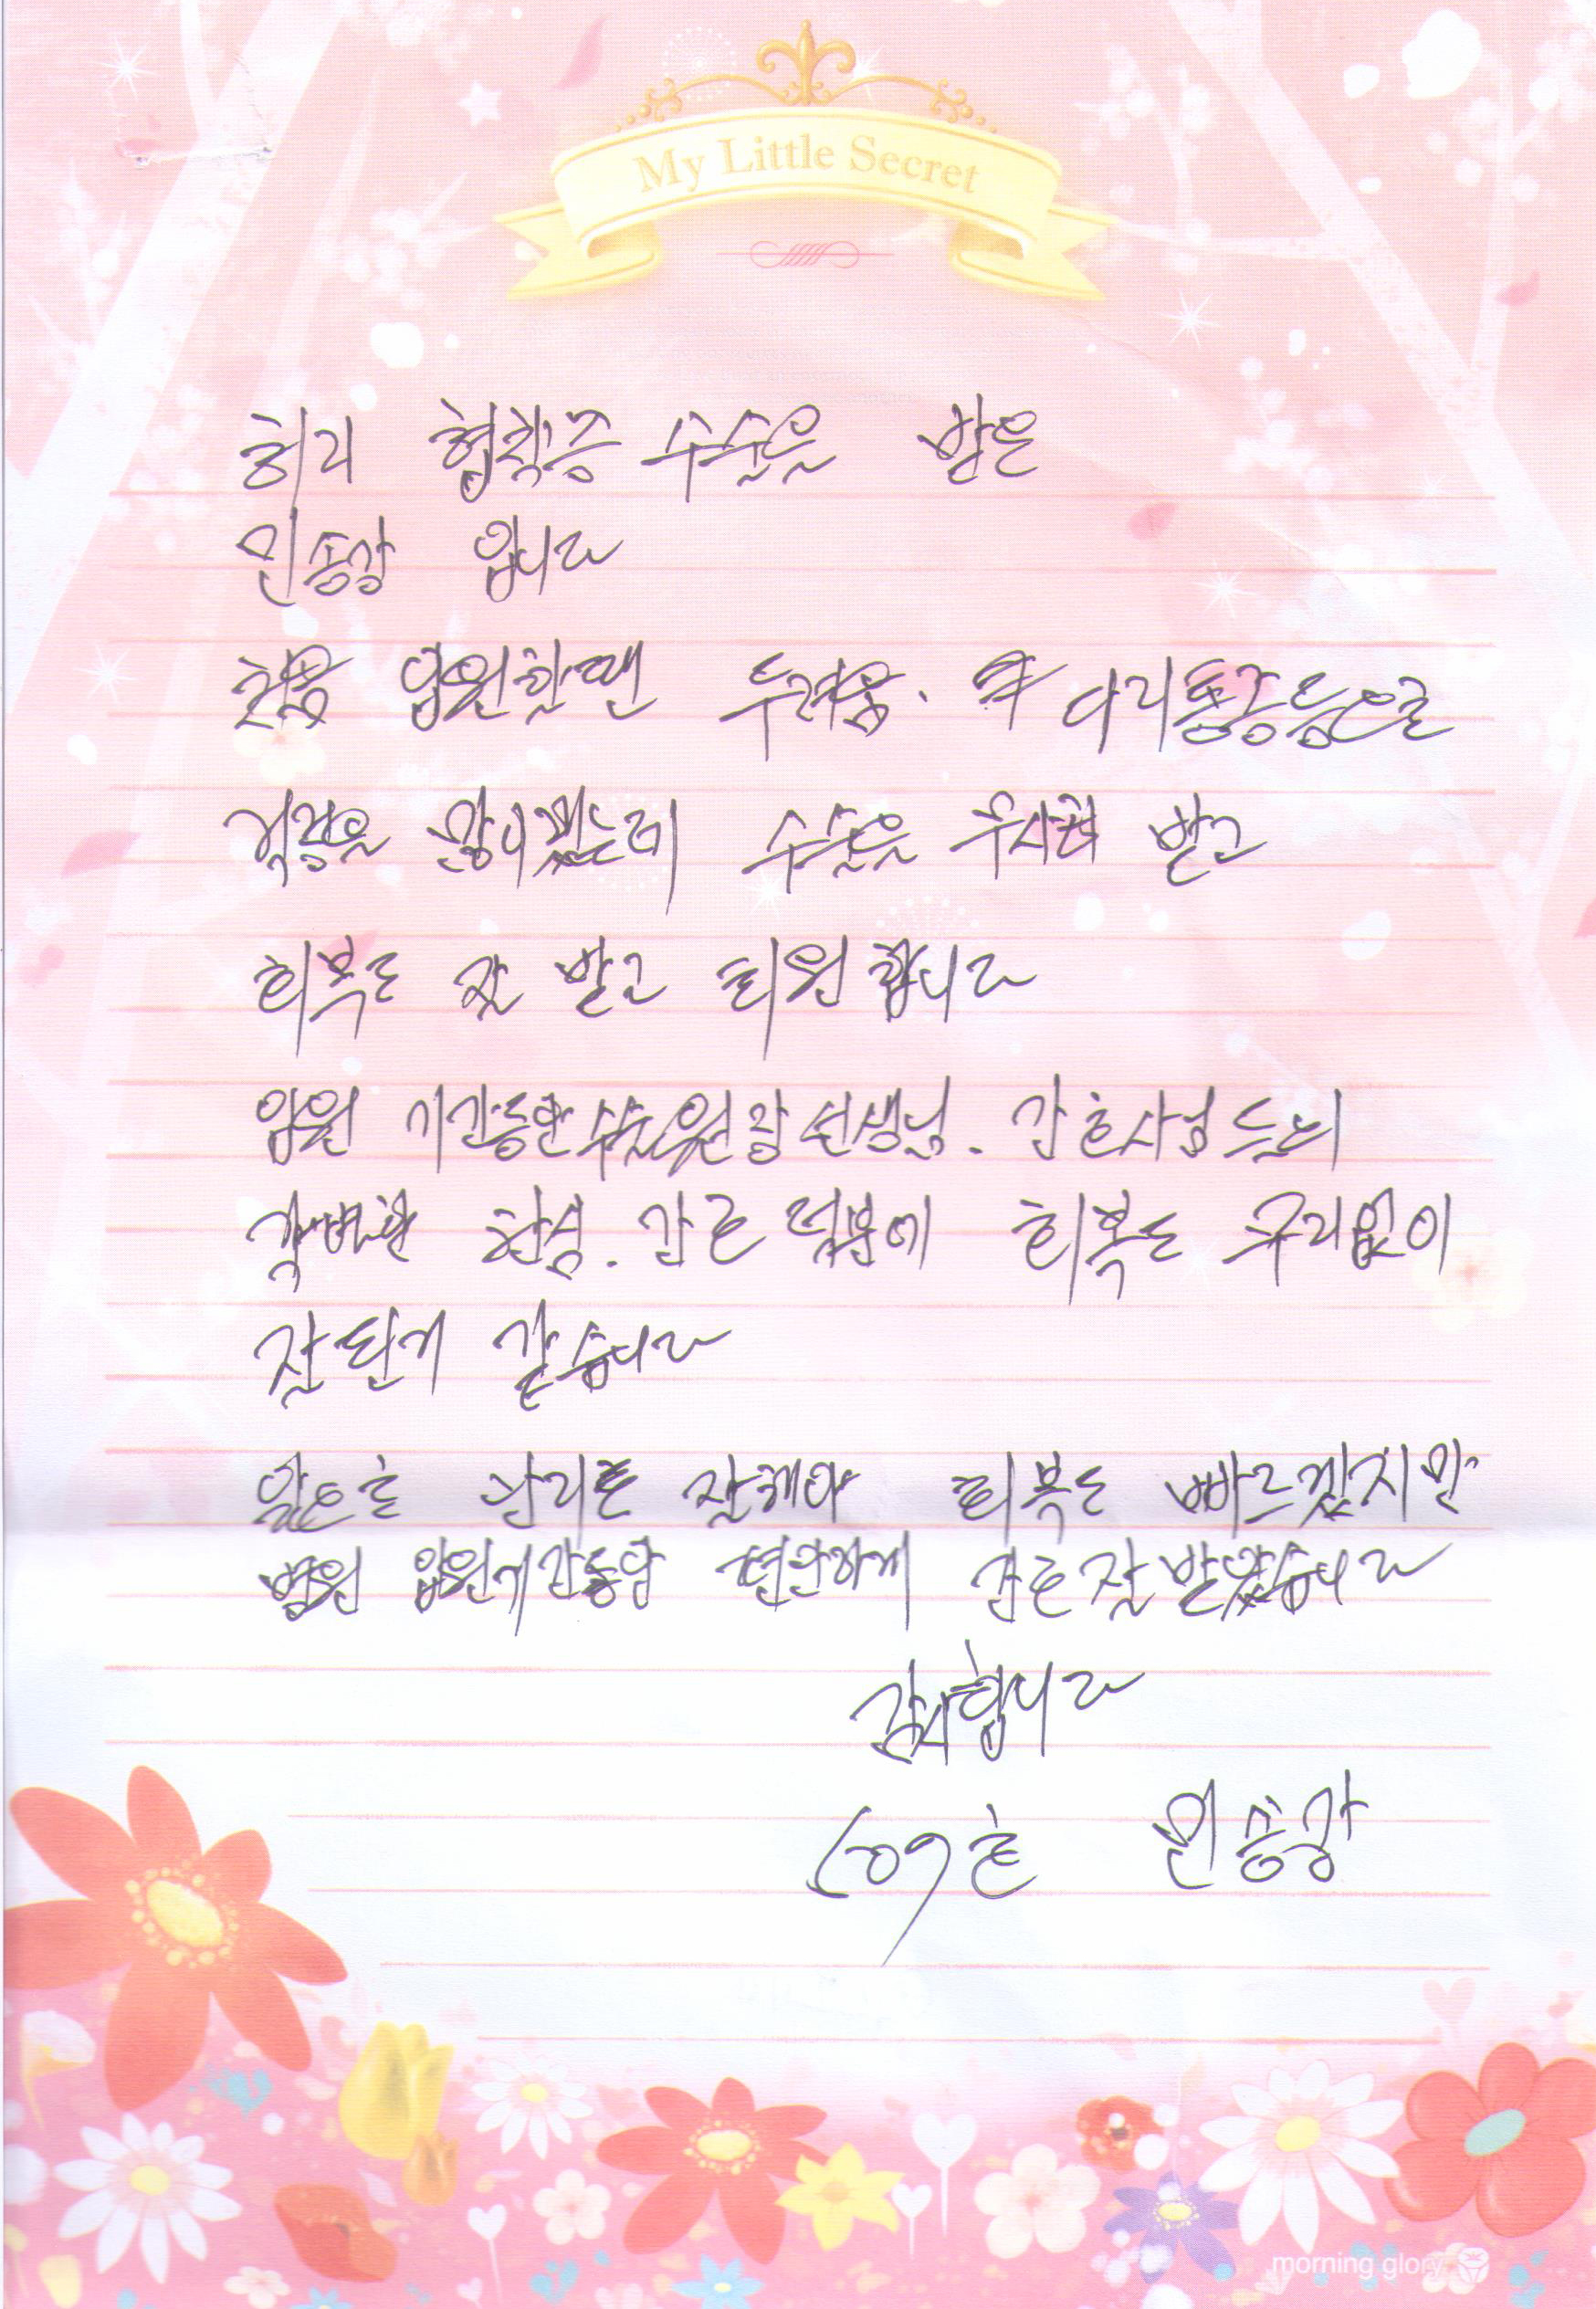 My Little Secret
허리 협착증 수술을 받은
민승강 입니다
처음 입원할땐 두려움. 다리통증등으로
걱정을 많이했는데 수술을 무사히 받고
회복도 잘 받고 퇴원합니다
입원 기간동안 수술원장선생님. 간호사님들의
각별한 헌신. 간호 덕분에 회복도 무리없이
잘 된거 같습니다
앞으로 관리를 잘해야 회복도 빠르겠지만
병원 입원기간동안 편안하게 간호 잘 받았습니다
감사합니다
609호 민승강
morning glory